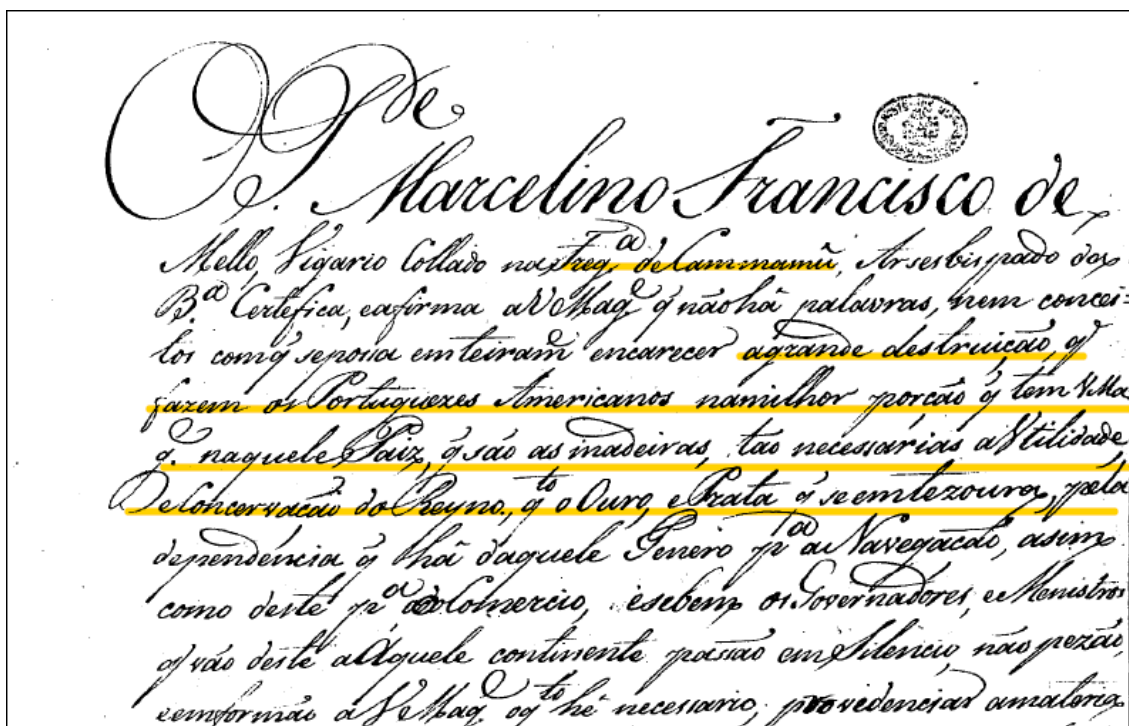 O P.de
Marcelino Francisco de
Mello, Vigario Collado na Freg.ª de Cammamũ, Arsesbispado da
B.ª Certefica, eafirma aVMag.e q̃ nãohá palavras, nem concei=
tos comq̃ sepossa emteiram.te encarecer agrande destruicão, q̃
fazem os Portuguezes Americanos namilhor porcão q̃ tem VMa
g.e naquele Paiz, q̃ são as madeiras, tao necessárias a Vtilidade,
e Concervacão do Reyno, q.to o Ouro, e Prata q̃ se emtezoura, péla
dependéncia q̃ há daquele Genero p.ª a Navegacão, asim
como deste p.ª o Comercio, esebem os Governadores, e Menistros
q̃ vão deste a Aquele continente passão em Silencio, não pezão,
eemformão a VMag.e oq.to hé necessario, providenciar amateria